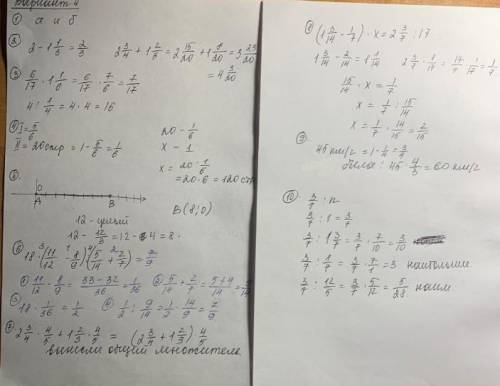 Вариант 4
① а и б
② 2 - 1 1/3 = 2/3   2 3/4 + 1 2/5 = 2 15/20 + 1 8/20 = 3 23/20
= 4 3/20
③ 6/17 · 1 1/6 = 6/17 · 7/6 = 7/17
4 : 1/4 = 4 · 4 = 16
④ I = 5/6
II = 20 стр = 1 - 5/6 = 1/6
20 - 1/6
x - 1
x = 20 · 1/6
= 20 · 6 = 120 стр
⑤
0
A B
B (8; 0)
12 - целый
12 - 12/3 = 12 - 4 = 8
⑥ 18 · (11/12 - 8/9) : (5/14 + 2/7) = 7/9
① 11/12 - 8/9 = 33 - 32/36 = 1/36   ② 5/14 + 2/7 = 5+4/14 = 9/14
③ 18 · 1/36 = 1/2   ④ 1/2 : 9/14 = 1/2 · 14/9 = 7/9
⑦ 2 3/4 · 4/5 + 1 2/3 · 4/5 = (2 3/4 + 1 2/3) 4/5
вынесли общий множитель
⑧ (1 3/14 - 1/7) · x = 2 3/7 : 17
1 3/14 - 2/14 = 1 1/14   2 3/7 · 1/17 = 17/7 · 1/17 = 1/7
15/14 · x = 1/7
x = 1/7 : 15/14
x = 1/7 · 14/15 = 2/15
⑨
45 км/ч = 1 - 1/4 = 3/4
45 · 4/3 = 60 км/ч
⑩ 3/7 : n
3/7 : 1 = 3/7
3/7 : 1 3/7 = 3/7 · 7/10 = 3/10
3/7 : 1/7 = 3/7 · 7/1 = 3 наибольшее
3/7 : 12/5 = 3/7 · 5/12 = 5/28 наим